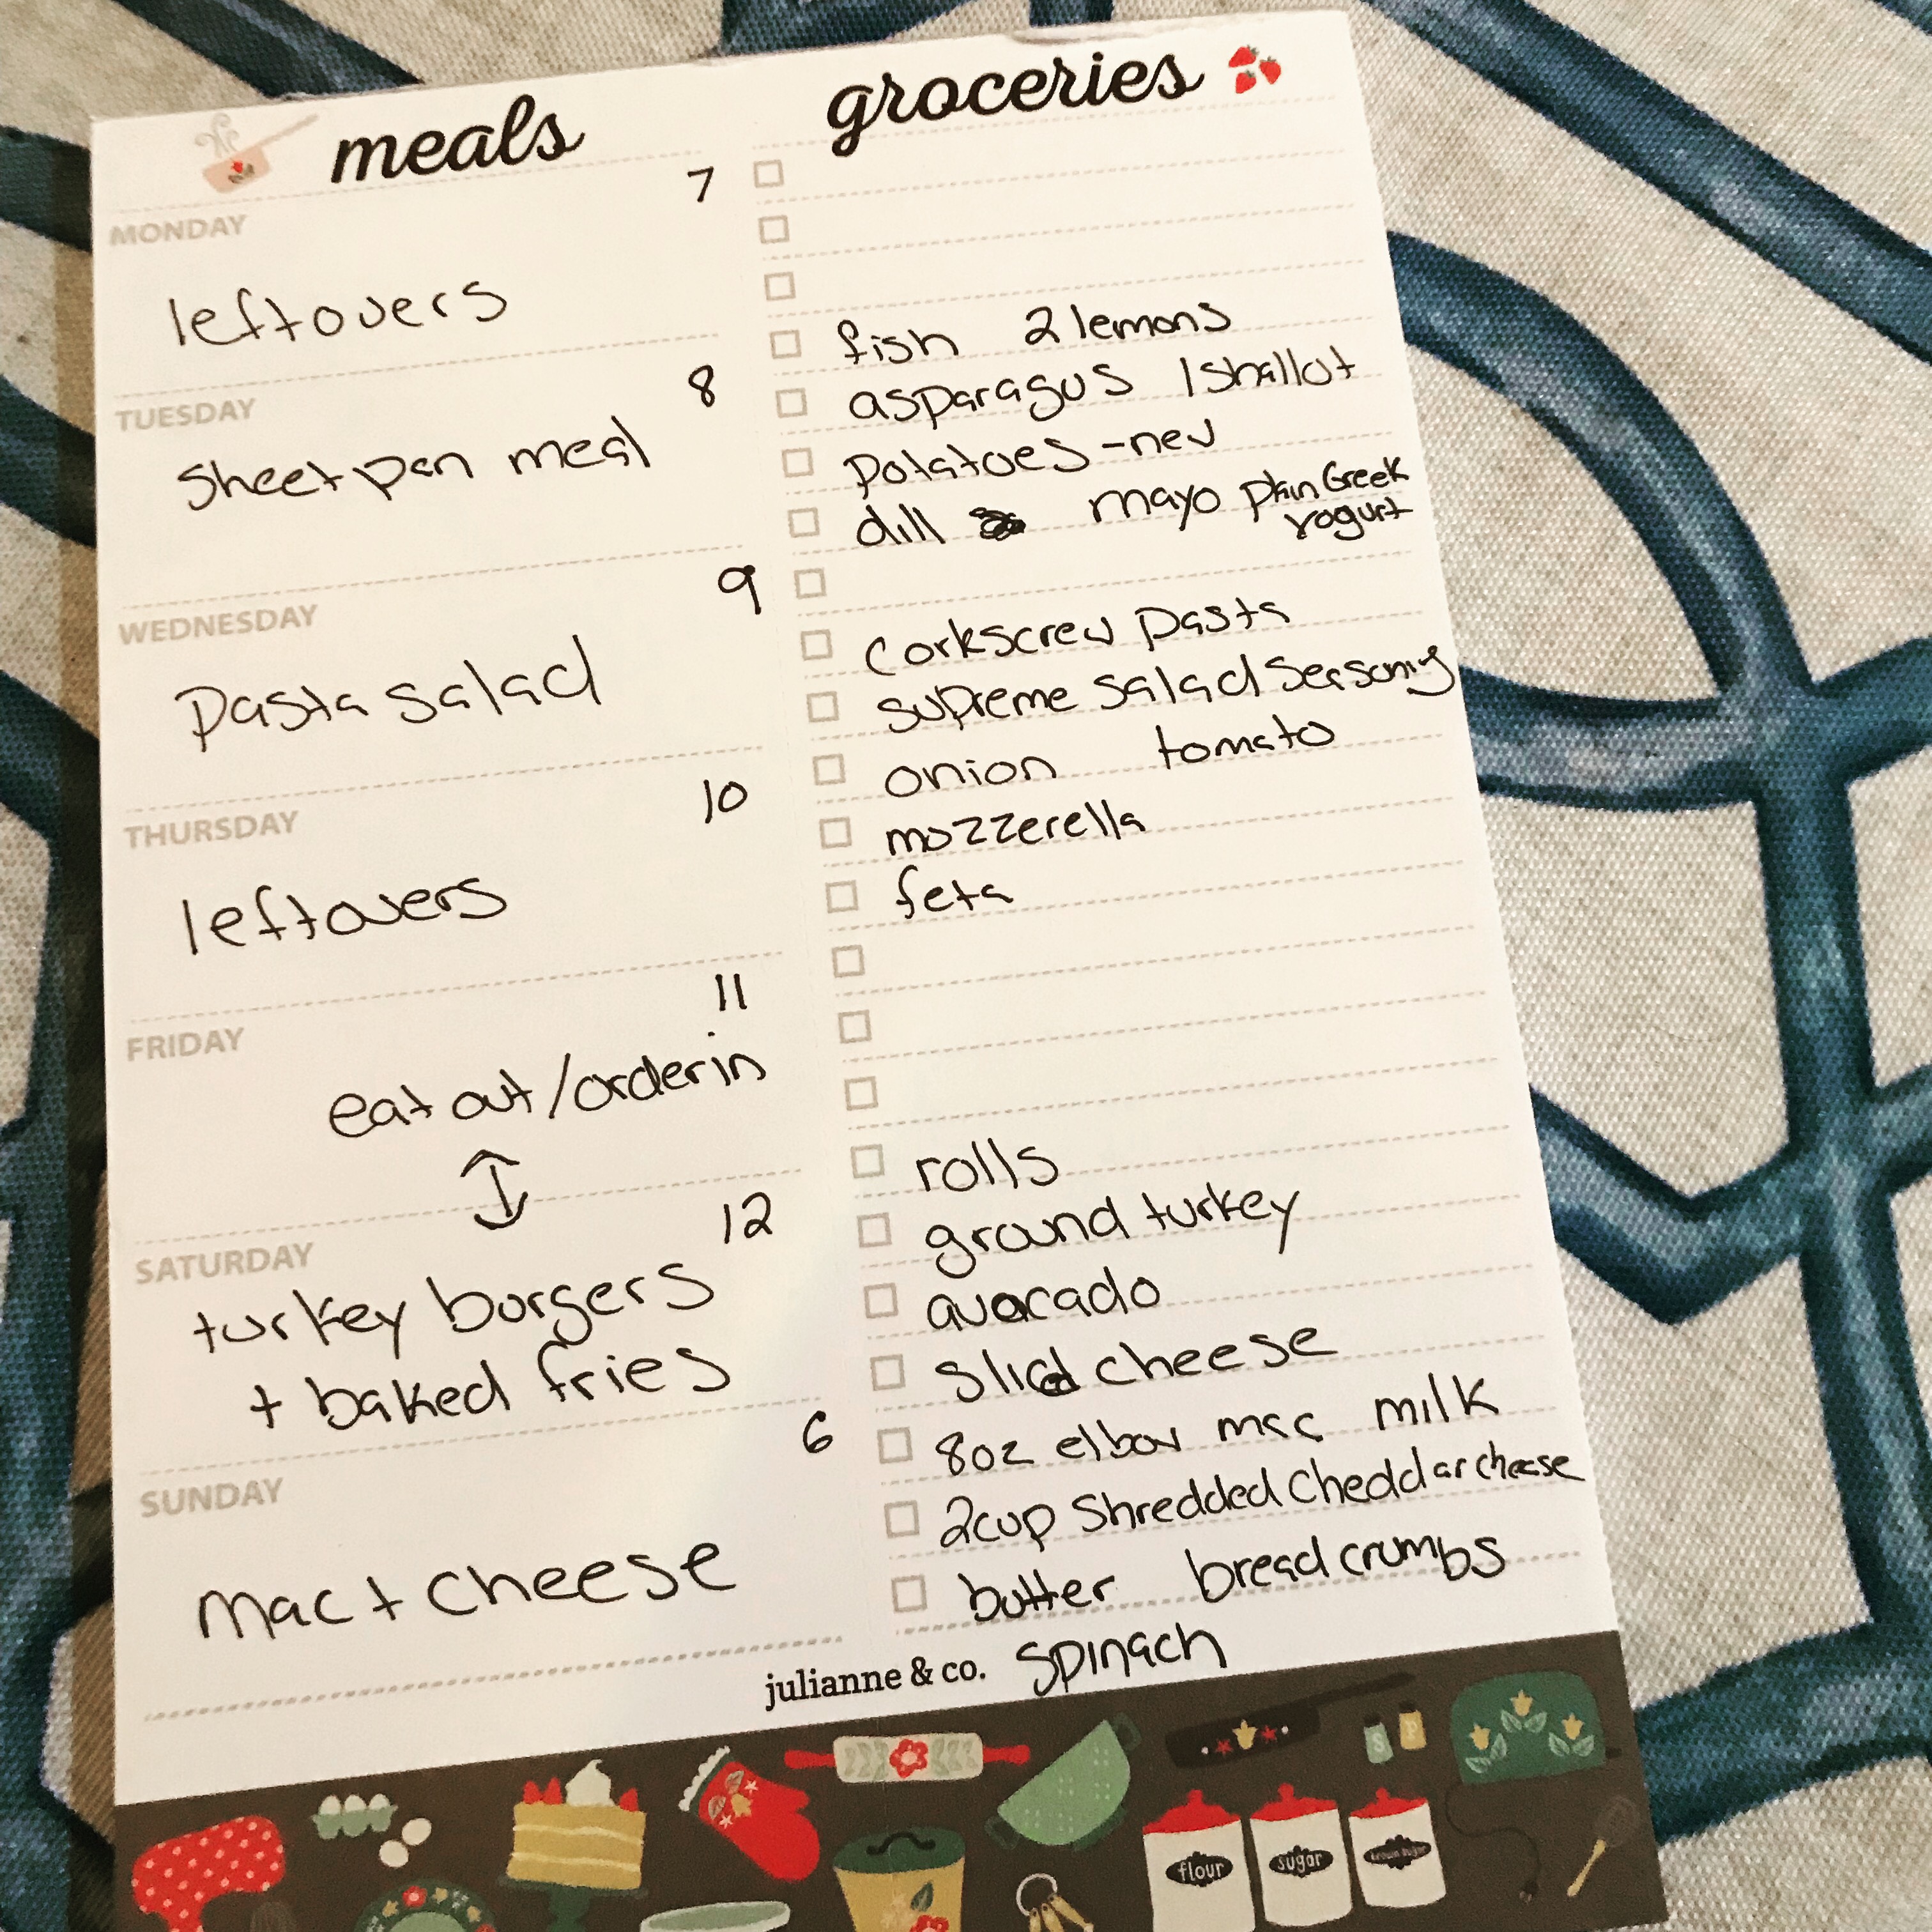 meals
7
MONDAY
leftovers
8
TUESDAY
Sheet pan meal
9
WEDNESDAY
Pasta salad
10
THURSDAY
leftovers
11
FRIDAY
eat out/order in
12
SATURDAY
turkey burgers
+ baked fries
6
SUNDAY
Mac + Cheese
groceries
fish 2 lemons
asparagus 1 shallot
potatoes - new
dill mayo plain Greek
yogurt
corkscrew pasta
supreme salad seasoning
onion tomato
mozzerella
feta
rolls
ground turkey
avocado
sliced cheese
8oz elbow mac milk
2cup Shredded Cheddar cheese
butter breadcrumbs
spinach
julianne & co.
S P
flour sugar brown sugar